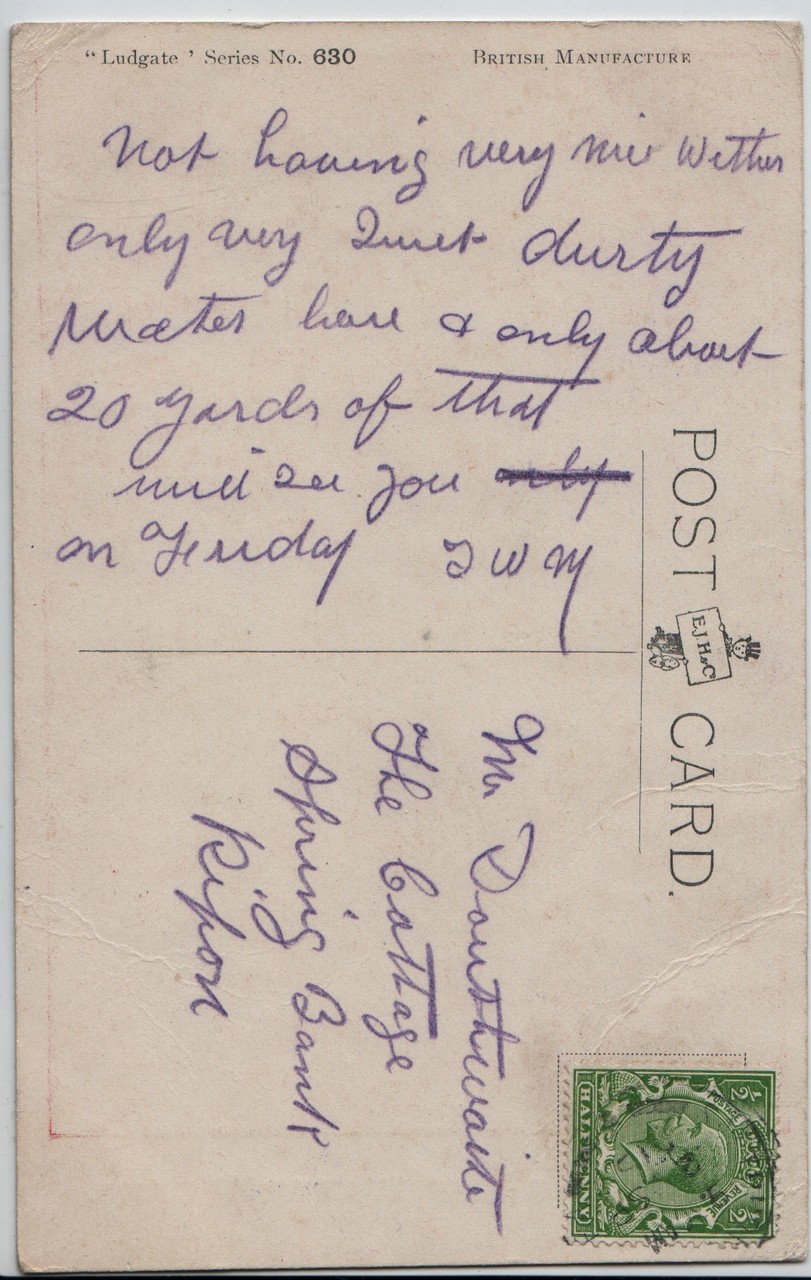 “Ludgate ’ Series No. 630 BRITISH MANUFACTURE
Not having very nice Wether
only very Quiet durty
Water hare & only about
20 yards of that
will see you only
on Friday J W M
POST CARD.
E.J.H & Co
Mr Douthwaite
The Cottage
Spring Bank
Ripon
POSTAGE REVENUE
1/2 1/2
HALFPENNY